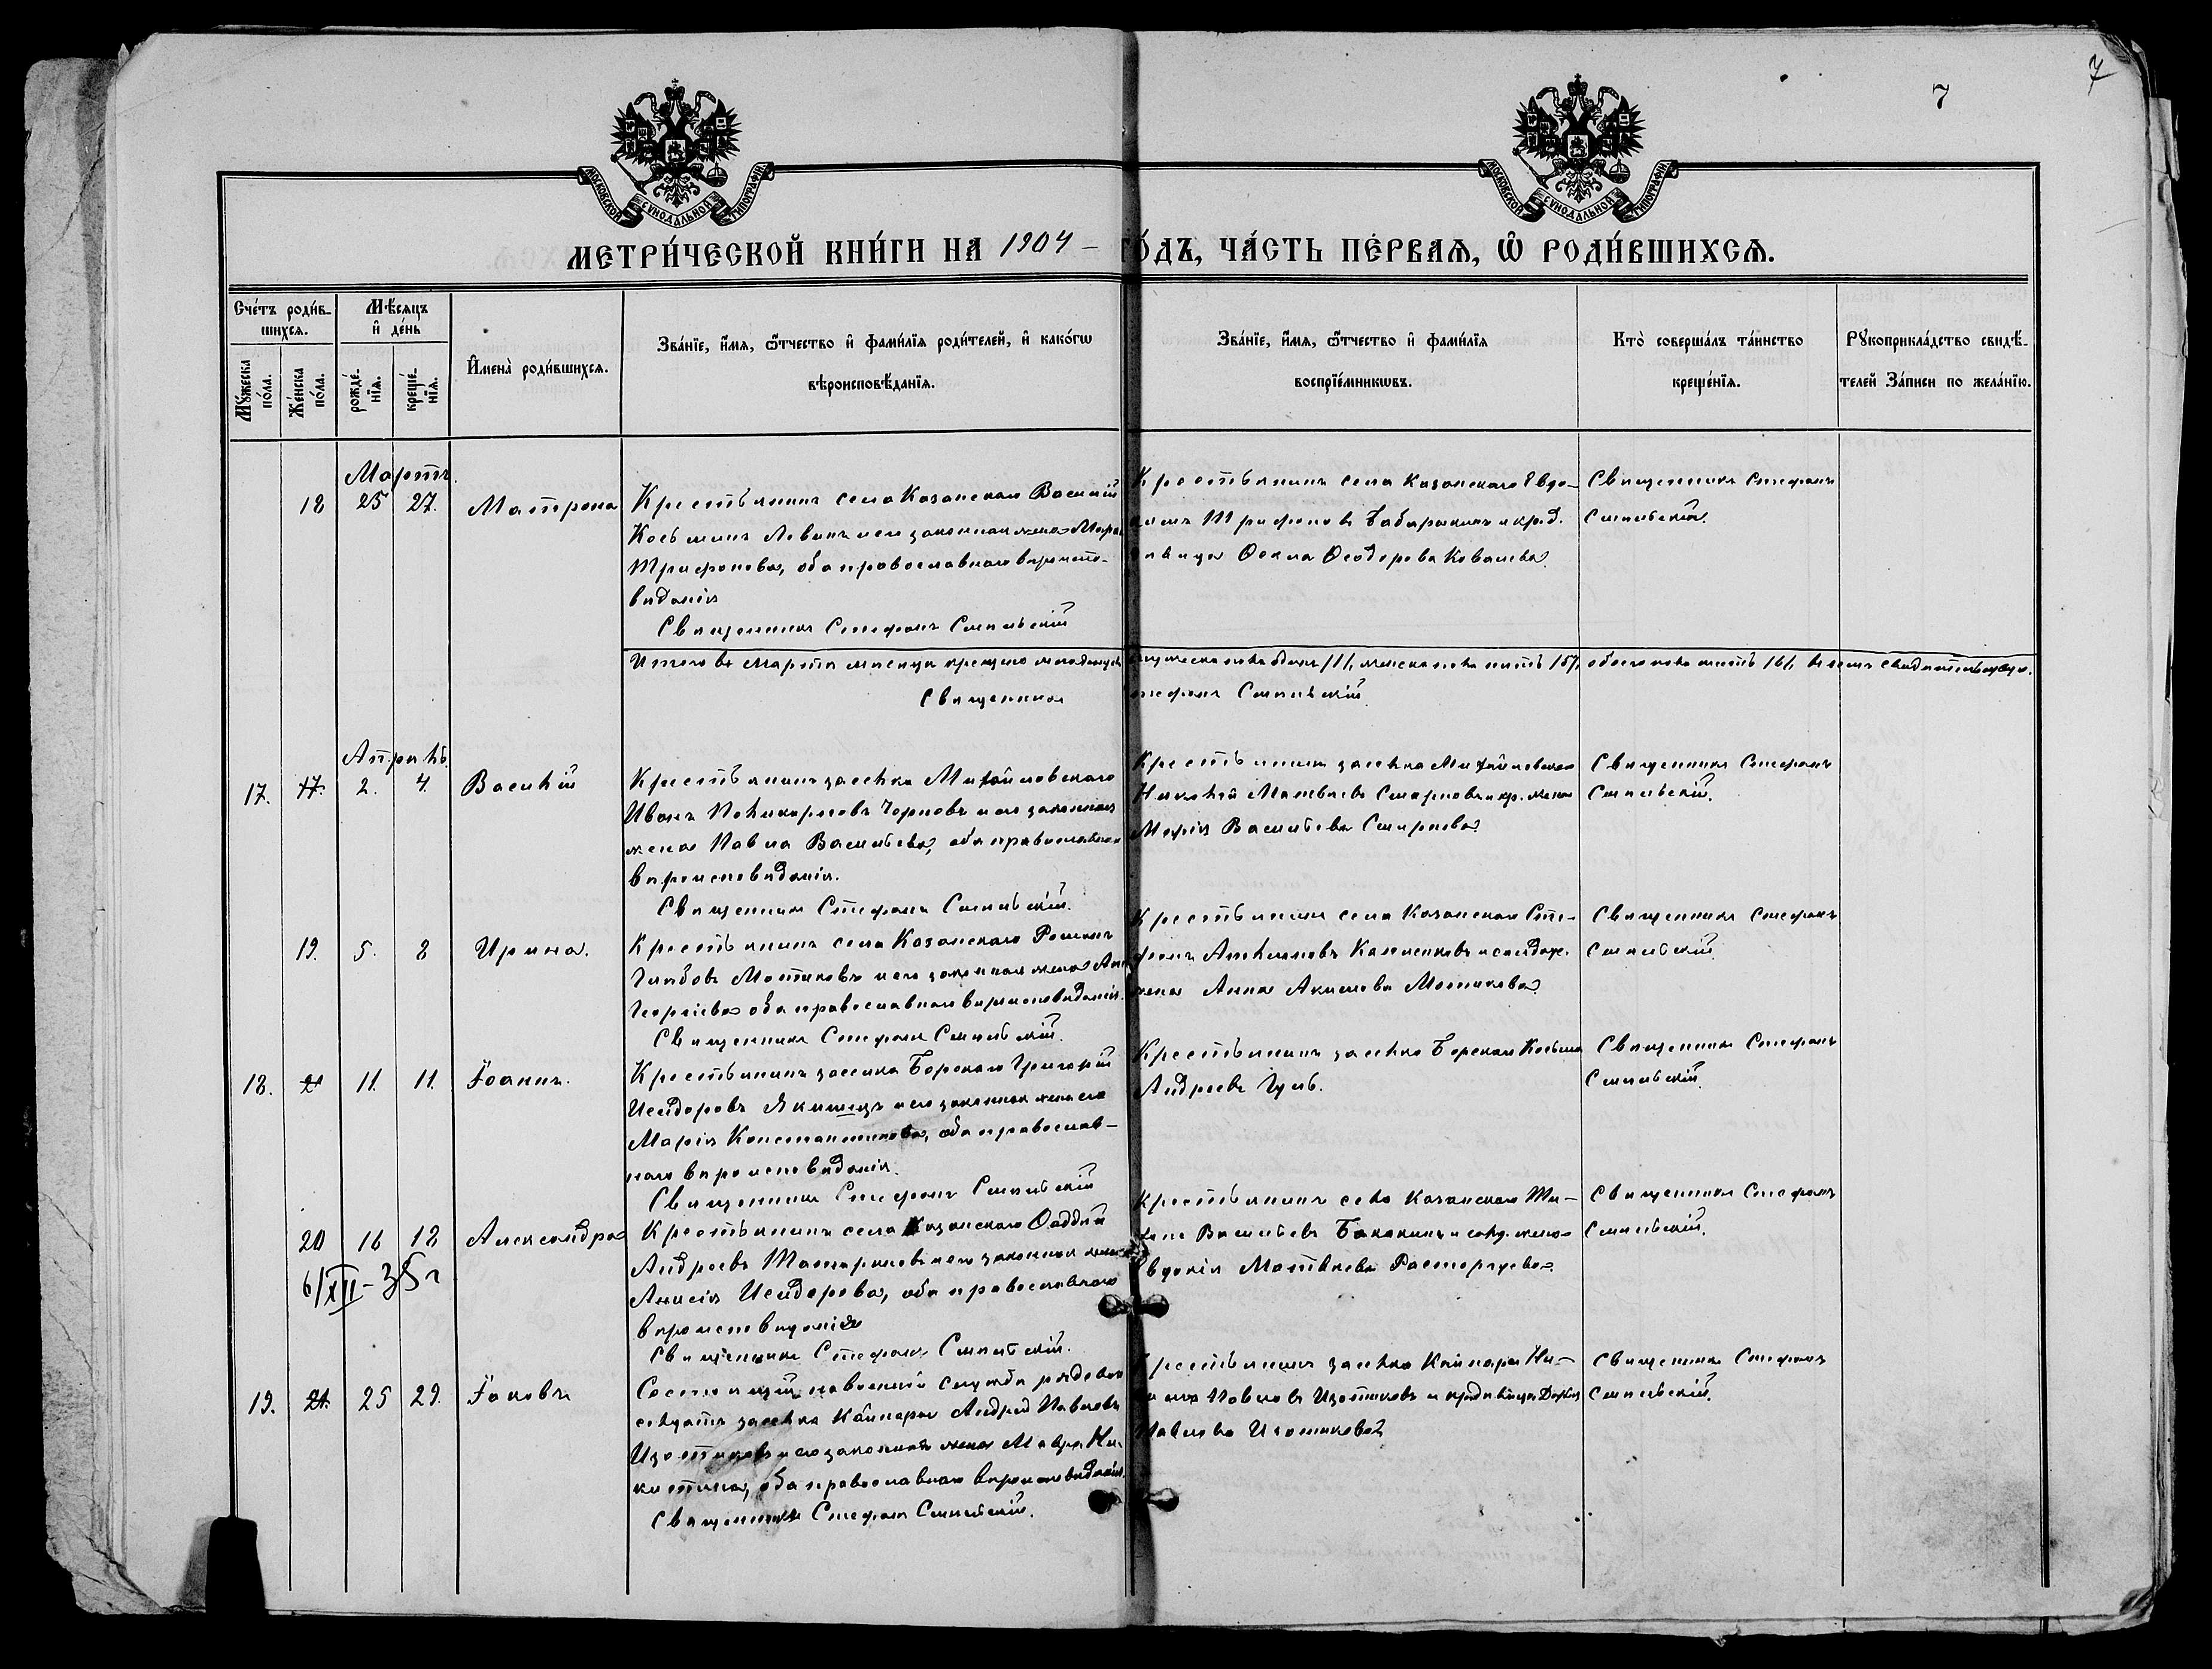 7
7
МОСКОВСКОЙ СѴНОДАЛЬНОЙ ТИПОГРАФІИ
МОСКОВСКОЙ СѴНОДАЛЬНОЙ ТИПОГРАФІИ
МЕТРИ́ЧЕСКОЙ КНИ́ГИ НА 1904 – ГО́ДЪ, ЧА́СТЬ ПЕ́РВАѦ, Ѡ҆ РОДИ́ВШИХСѦ.
Сче́тъ роди́в-
шихсѧ.
Мꙋ́жеска по́ла.
Же́нска по́ла.
Мѣ́сѧцъ
и҆ де́нь
рожде́-нїѧ.
креще́-нїѧ.
И҆мена̀ роди́вшихсѧ.
Зва́нїе, и҆́мѧ, ѻ҆́тчество и҆ фами́лїѧ роди́телей, и҆ како́гѡ
вѣроисповѣ́данїѧ.
Зва́нїе, и҆́мѧ, ѻ҆́тчество и҆ фами́лїѧ
воспрїе́мникѡвъ.
Кто̀ соверша́лъ та́инство
креще́нїѧ.
Рꙋкоприкла́дство свидѣ́-
телей За́писи по жела́нїю.
Мартъ.
18 25 27. Матрона
Крестьянинъ села Казанскаго Василій
Косьминъ Левинъ и его законная жена Марѳа
Трифонова, оба православнаго вѣроиспо-
вѣданія
Священникъ Стефанъ
Крестьянинъ села Казанскаго Евдо-
кимъ Трифоновъ и кр. д.
дѣвица Ѳекла Ѳеодорова Ковалева.
Священникъ Стефанъ
Итого въ Мартѣ мѣсяцѣ крещено младенцевъ мужеска пола одинъ /1/, женска пола пять /5/, обоего пола шесть /6/. въ чемъ свидѣтельствую.
Священникъ Стефанъ
Апрѣль.
17. 17. 2. 4. Василій
Крестьянинъ засѣлка Михайловскаго
Иванъ Поликарповъ Черновъ и его законная
жена Павла Васильева, оба православнаго
вѣроисповѣданія.
Священникъ Стефанъ
Крестьянинъ засѣлка Михайловскаго
Николай Матвѣевъ Смирновъ и кр. жена
Марія Васильева Смирнова.
Священникъ Стефанъ
19. 5. 8 Ирина.
Крестьянинъ села Казанскаго Романъ
Глѣбовъ Мотяковъ и его законная жена Анна
Георгіева оба православнаго вѣроисповѣданія.
Священникъ Стефанъ
Крестьянинъ села Казанскаго Сте-
фанъ и солдат.
жена Анна Акимова Мотякова.
Священникъ Стефанъ
18. 11. 11. Іоаннъ.
Крестьянинъ заселка Борскаго Григорій
Исидоровъ Якимецъ и его законная жена его
Марія Константинова, оба православ-
наго вѣроисповѣданія.
Священникъ Стефанъ
Крестьянинъ засѣлка Борскаго Косьма
Андреевъ
Священникъ Стефанъ
20 16 18 Александра
6/XII-35 г
Крестьянинъ села Казанскаго Ѳаддей
Андреевъ и его законная жена
Анисія Исидорова, оба православнаго
вѣроисповѣданія
Священникъ Стефанъ
Крестьянинъ села Казанскаго Ти-
Васильевъ Баканинъ и солд. жена
Евдокія Матвѣева Расторгуева.
Священникъ Стефанъ
19. 21. 25 29. Іаковъ
Состоящій на военной службѣ рядовой
солдатъ засѣлка Кайнары Андрей Павловъ
Изотиковъ и его законная жена Мавра Ни-
китина, оба православнаго вѣроисповѣданія.
Священникъ Стефанъ
Крестьянинъ засѣлка Кайнары
Павловъ Изотиковъ и кр. дѣвица Дарія
Павлова Изотикова.
Священникъ Стефанъ